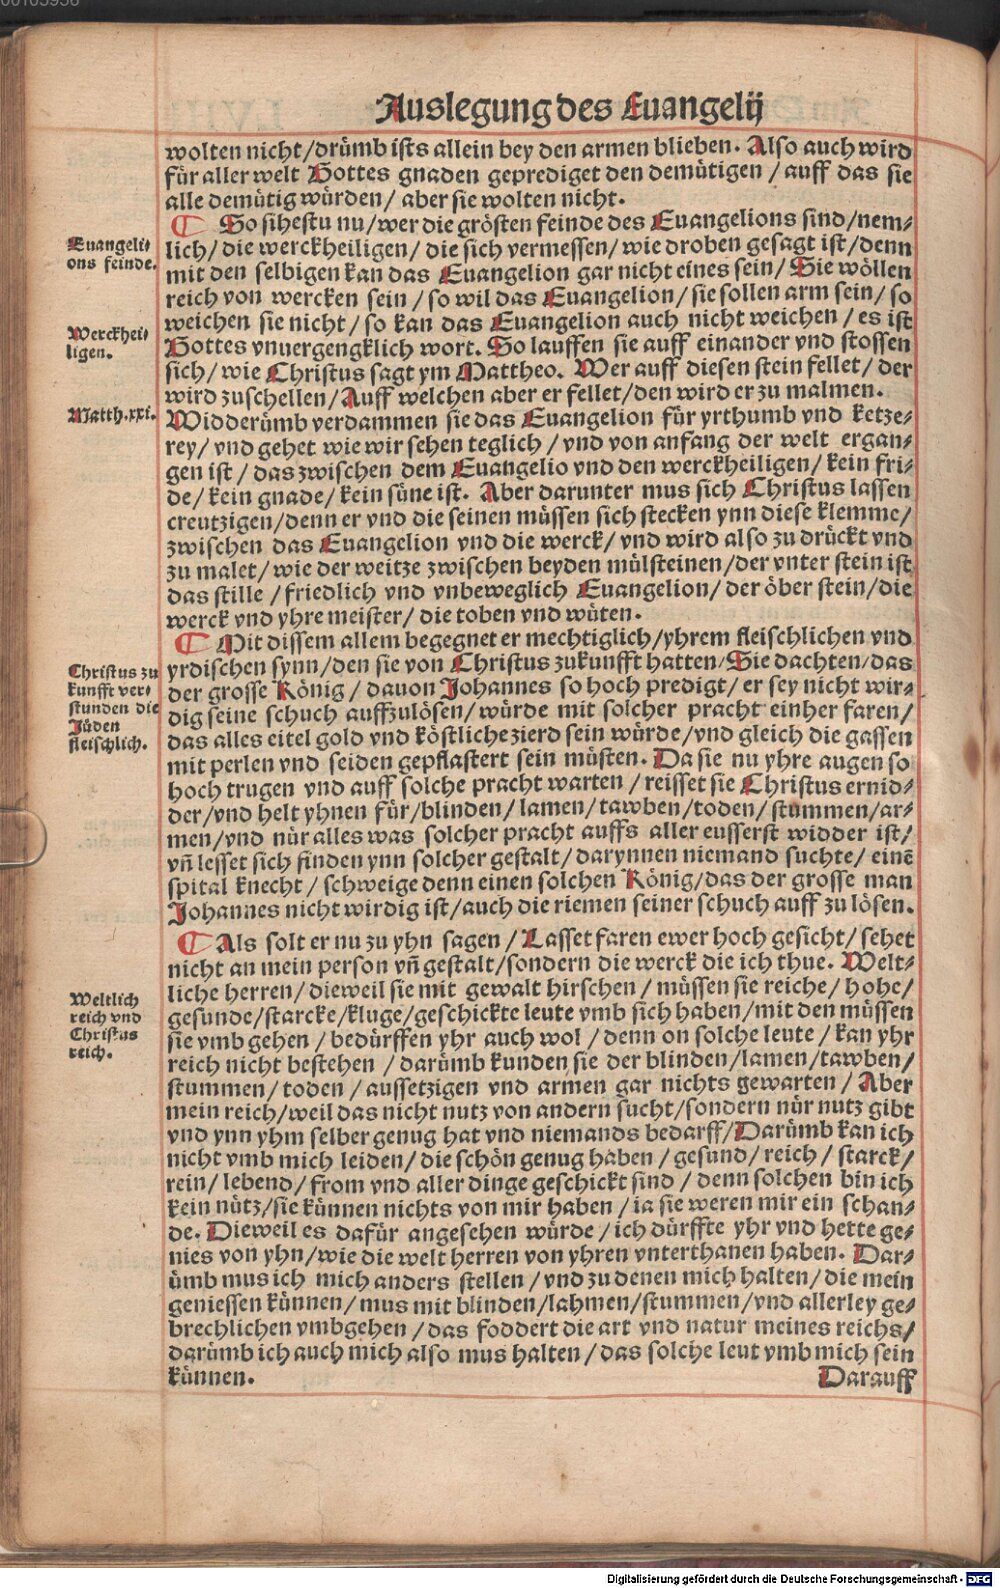 Auslegung des Euangelij
wolten nicht/drümb ists allein bey den armen blieben. Also auch wird
für aller welt Gottes gnaden geprediget den demütigen / auff das sie
alle demütig würden/ aber sie wolten nicht.
So sihestu nu/wer die grösten feinde des Euangelions sind/nem⸗
lich/ die werckheiligen/ die sich vermessen/ wie droben gesagt ist/denn
mit den selbigen kan das Euangelion gar nicht eines sein/ Sie wöllen
reich von wercken sein / so wil das Euangelion/ sie sollen arm sein/ so
weichen sie nicht/ so kan das Euangelion auch nicht weichen/ es ist
Gottes vnuergengklich wort. So lauffen sie auff einander vnd stossen
sich/ wie Christus sagt ym Mattheo. Wer auff diesen stein fellet/ der
wird zuschellen/ Auff welchen aber er fellet/den wird er zu malmen.
Widderümb verdammen sie das Euangelion für yrthumb vnd ketze⸗
rey/ vnd gehet wie wir sehen teglich/ vnd von anfang der welt ergan⸗
gen ist/ das zwischen dem Euangelio vnd den werckheiligen/ kein fri⸗
de/ kein gnade/ kein süne ist. Aber darunter mus sich Christus lassen
creutzigen/denn er vnd die seinen müssen sich stecken ynn diese klemme/
zwischen das Euangelion vnd die werck/ vnd wird also zu drückt vnd
zu malet/ wie der weitze zwischen beyden mülsteinen/der vnter stein ist
das stille / friedlich vnd vnbeweglich Euangelion/ der öber stein/die
werck vnd yhre meister/ die toben vnd wüten.
Mit dissem allem begegnet er mechtiglich/yhrem fleischlichen vnd
yrdischen synn/den sie von Christus zukunfft hatten/Sie dachten/das
der grosse König / dauon Johannes so hoch predigt/ er sey nicht wir⸗
dig seine schuch auffzulösen/ würde mit solcher pracht einher faren/
das alles eitel gold vnd köstliche zierd sein würde/vnd gleich die gassen
mit perlen vnd seiden gepflastert sein müsten. Da sie nu yhre augen so
hoch trugen vnd auff solche pracht warten / reisset sie Christus ernid⸗
der/vnd helt yhnen für/blinden/ lamen/ tawben/toden/ stummen/ar⸗
men/vnd nür alles was solcher pracht auffs aller eusserst widder ist/
vn̄ lesset sich finden ynn solcher gestalt/ darynnen niemand suchte/ einē
spital knecht / schweige denn einen solchen König/das der grosse man
Johannes nicht wirdig ist/auch die riemen seiner schuch auff zu lösen.
Als solt er nu zu yhn sagen / Lasset faren ewer hoch gesicht/ sehet
nicht an mein person vn̄ gestalt/sondern die werck die ich thue. Welt⸗
liche herren/ dieweil sie mit gewalt hirschen / müssen sie reiche/ hohe/
gesunde/starcke/kluge/geschickte leute vmb sich haben/mit den müssen
sie vmb gehen / bedürffen yhr auch wol / denn on solche leute / kan yhr
reich nicht bestehen / darümb kunden sie der blinden/lamen/tawben/
stummen/ toden / aussetzigen vnd armen gar nichts gewarten / Aber
mein reich/weil das nicht nutz von andern sucht/sondern nür nutz gibt
vnd ynn yhm selber genug hat vnd niemands bedarff/Darümb kan ich
nicht vmb mich leiden/ die schön genug haben / gesund/ reich / starck/
rein/ lebend/ from vnd aller dinge geschickt sind / denn solchen bin ich
kein nütz/sie künnen nichts von mir haben / ia sie weren mir ein schan⸗
de. Dieweil es dafür angesehen würde / ich dürffte yhr vnd hette ge⸗
nies von yhn/wie die welt herren von yhren vnterthanen haben. Dar⸗
ümb mus ich mich anders stellen / vnd zu denen mich halten/ die mein
geniessen künnen/ mus mit blinden/lahmen/stummen/vnd allerley ge⸗
brechlichen vmbgehen / das foddert die art vnd natur meines reichs/
darümb ich auch mich also mus halten / das solche leut vmb mich sein
künnen. Darauff
Euangeli⸗
ons feinde.
Werckhei⸗
ligen.
Matth.xxi.
Christus zu
kunfft ver⸗
stunden die
Jüden
fleischlich.
Weltlich
reich vnd
Christus
reich.
Digitalisierung gefördert durch die Deutsche Forschungsgemeinschaft - DFG